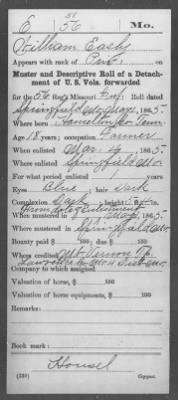 E 51 56 Mo.
William Easly
Appears with rank of Pvt. on
Muster and Descriptive Roll of a Detach-
ment of U. S. Vols. forwarded
for the 56 Reg't Missouri Inf.
Springfield Mo 1865.
Where born Hamilton Co Tenn
Age 18 years; occupation Farmer
When enlisted Mar. 1865.
Where enlisted Springfield Mo.
For what period enlisted 1 years.
Eyes Blue; hair Dark
Complexion Dark; height ft. in.
When mustered in 1865.
Where mustered in Springfield Mo
Bounty paid $ 100; due $ 100
Where credited Mt. Vernon Tp.
Lawrence Co Mo 4 Dist Mo.
Company to which assigned
Valuation of horse, $ 100
Valuation of horse equipments, $ 100
Remarks:
Book mark:
Housel
(339) Copyist.